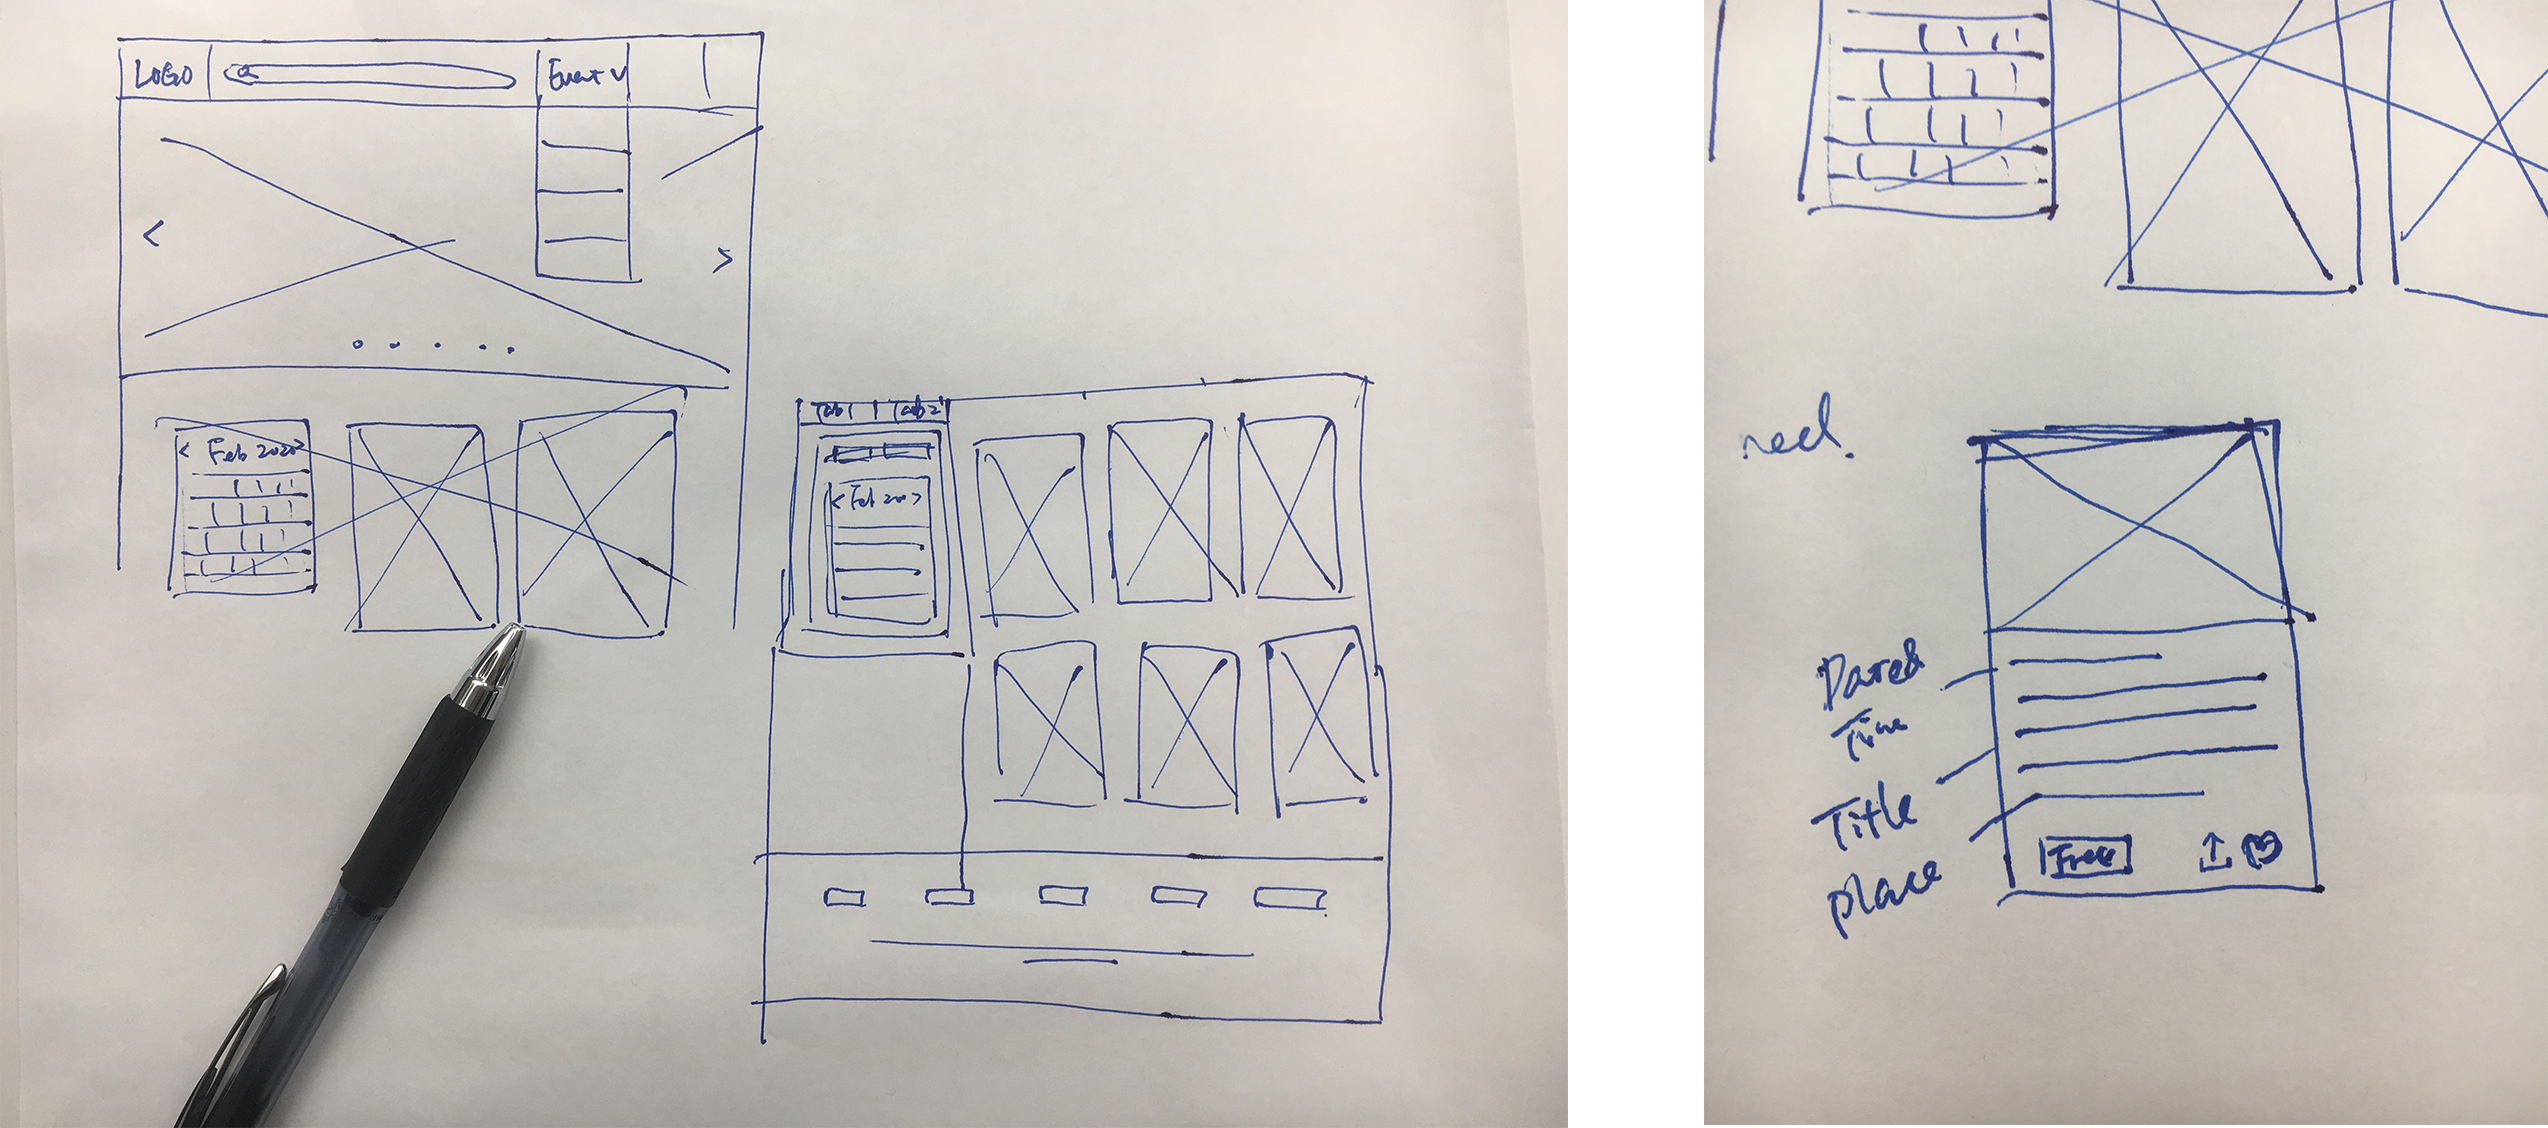 LOGO
Event v
< Feb 2020 >
Tab 1 | Tab 2
< Feb 20 >
Date &
Time
Title
place
Free